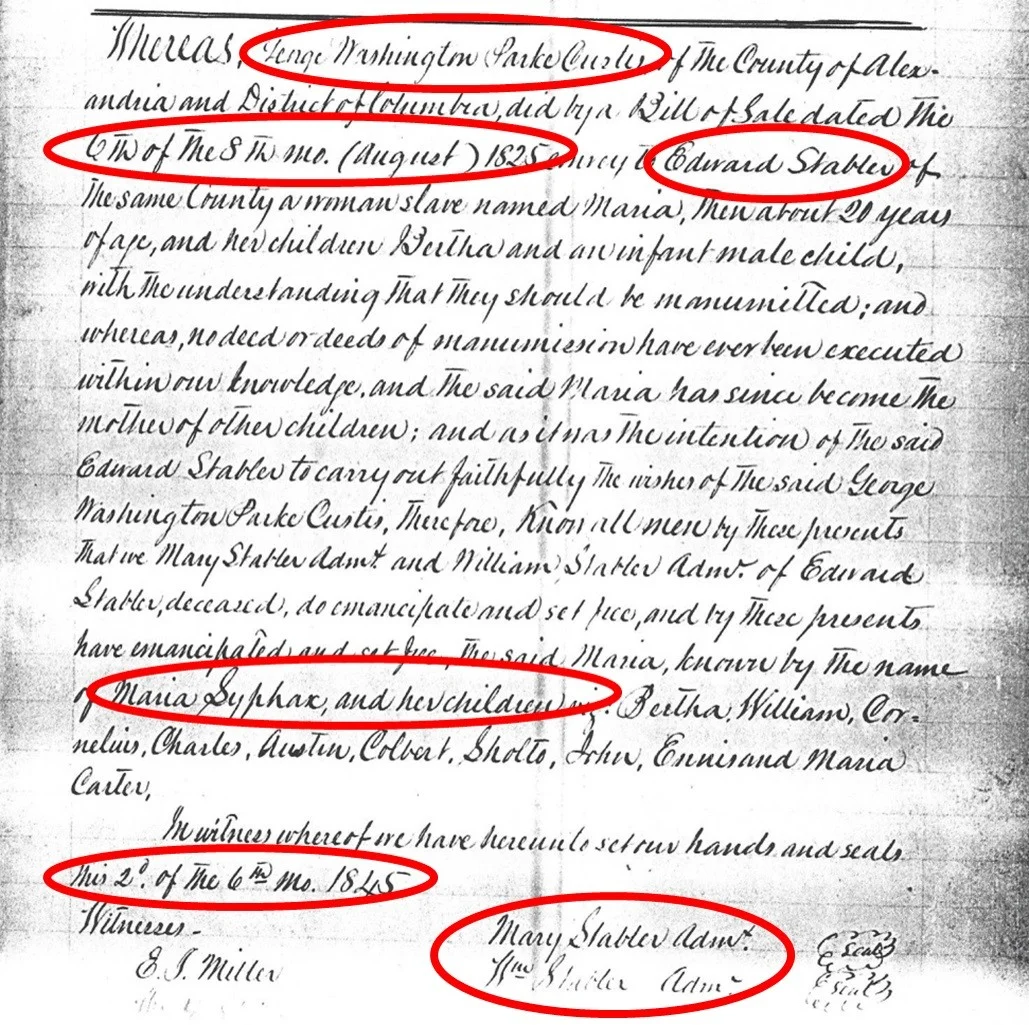 Whereas, George Washington Parke Custis of the County of Alex-
andria and District of Columbia, did by a Bill of Sale dated the
6th of the 8th mo. (August) 1825 convey to Edward Stabler of
the same County a woman slave named Maria, then about 20 years
of age, and her children Bertha and an infant male child,
with the understanding that they should be manumitted; and
whereas, no deed or deeds of manumission have ever been executed
within our knowledge, and the said Maria has since become the
mother of other children; and as it was the intention of the said
Edward Stabler to carry out faithfully the wishes of the said George
Washington Parke Custis, Therefore, Know all men by these presents
that we Mary Stabler Admx. and William Stabler Admr. of Edward
Stabler, deceased, do emancipate and set free, and by these presents
have emancipated and set free, the said Maria, known by the name
of Maria Syphax, and her children viz. Bertha, William, Cor=
nelius, Charles, Austin, Colbert, Sholto, John, Ennis and Maria
Carter,
In witness whereof we have hereunto set our hands and seals
this 2d. of the 6th mo. 1845
Witnesses-
Mary Stabler Admx. Seal
E. J. Miller
Wm Stabler Admr Seal